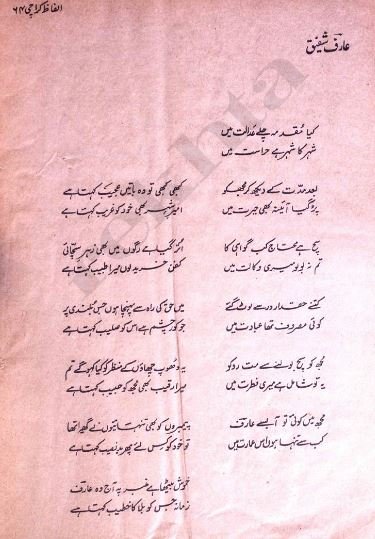 الفاظ کراچی ۶۴
عارف شفیق
کیا مقدمہ چلے عدالت میں
شہر کا شہر ہے حراست میں
بعد مدت کے دیکھ کر مجھ کو
پڑ گیا آئینہ بھی حیرت میں
سچ ہے محتاج کب گواہی کا
تم نہ بولو میری وکالت میں
کتنے حقدار در سے لوٹ گئے
کوئی مصروف تھا عبادت میں
مجھ کو سچ بولنے سے مت روکو
یہ تو شامل ہے میری فطرت میں
مجھ میں کوئی تو آبسے عارف
کب سے تنہا ہوں اس عمارت میں
کبھی کبھی تو وہ باتیں عجیب کہتا ہے
امیر شہر بھی خود کو غریب کہتا ہے
اتر گیا ہے رگوں میں بھی زہر سچائی
کفن خرید لوں میرا طبیب کہتا ہے
میں حق کی راہ سے پہنچا ہوں جس بلندی پر
جو کور چشم ہے اس کو صلیب کہتا ہے
یہ دھوپ چھاؤں کے منظر کو کیا کہو گے تم
میرا رقیب بھی مجھ کو حبیب کہتا ہے
پیمبروں کو بھی تنہائیوں نے گھیرا تھا
تو خود کو کس لئے پھر بد نصیب کہتا ہے
خموش بیٹھا ہے منبر پہ آج وہ عارف
زمانہ جس کو بلا کا خطیب کہتا ہے
rekhta